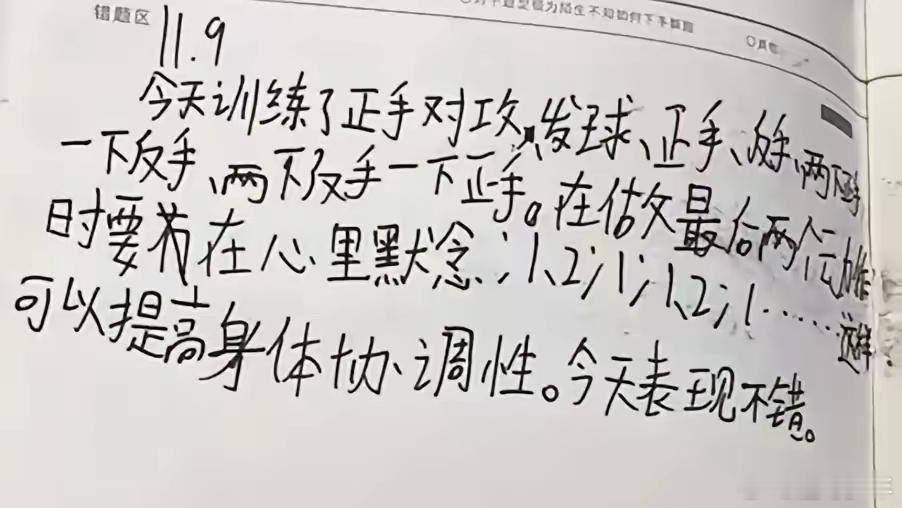 错题区
11.9
今天训练了正手对攻、发球、正手、反手、两下正手
一下反手、两下反手一下正手。在做最后两个动作
时要在心里默念；1、2；1；1、2；1……这样
可以提高身体协调性。今天表现不错。